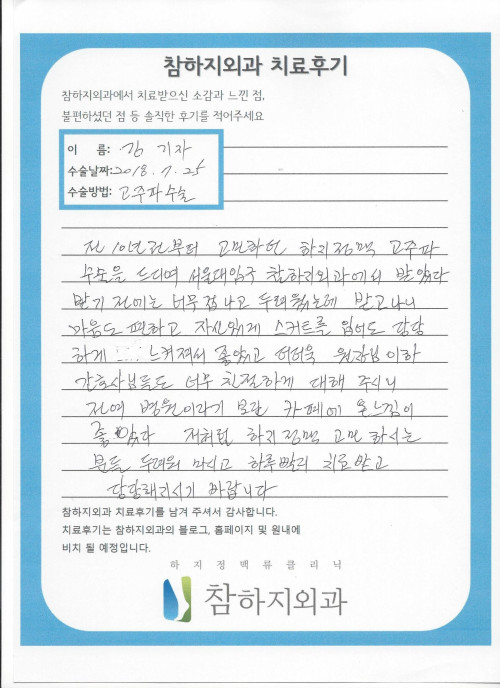 참하지외과 치료후기
참하지외과에서 치료받으신 소감과 느낀 점,
불편하셨던 점 등 솔직한 후기를 적어주세요
이 름: 김 기자
수술날짜: 2018. 7. 25
수술방법: 고주파수술
전 10년전부터 고민하던 하지정맥 고주파
수술을 드디어 서울대입구 참하지외과에서 받았다
받기 전에는 너무 겁나고 두려웠는데 받고나니
마음도 편하고 자신있게 스커트를 입어도 당당
하게 느껴져서 좋았고 더더욱 원장님 이하
간호사님들도 너무 친절하게 대해 주시니
전혀 병원이라기 보단 카페에 온느낌이
좋았다 저처럼 하지정맥 고민 하시는
분들 두려워 마시고 하루빨리 치료받고
당당해지시기 바랍니다
참하지외과 치료후기를 남겨 주셔서 감사합니다.
치료후기는 참하지외과의 블로그, 홈페이지 및 원내에
비치 될 예정입니다.
하지정맥류클리닉
참하지외과